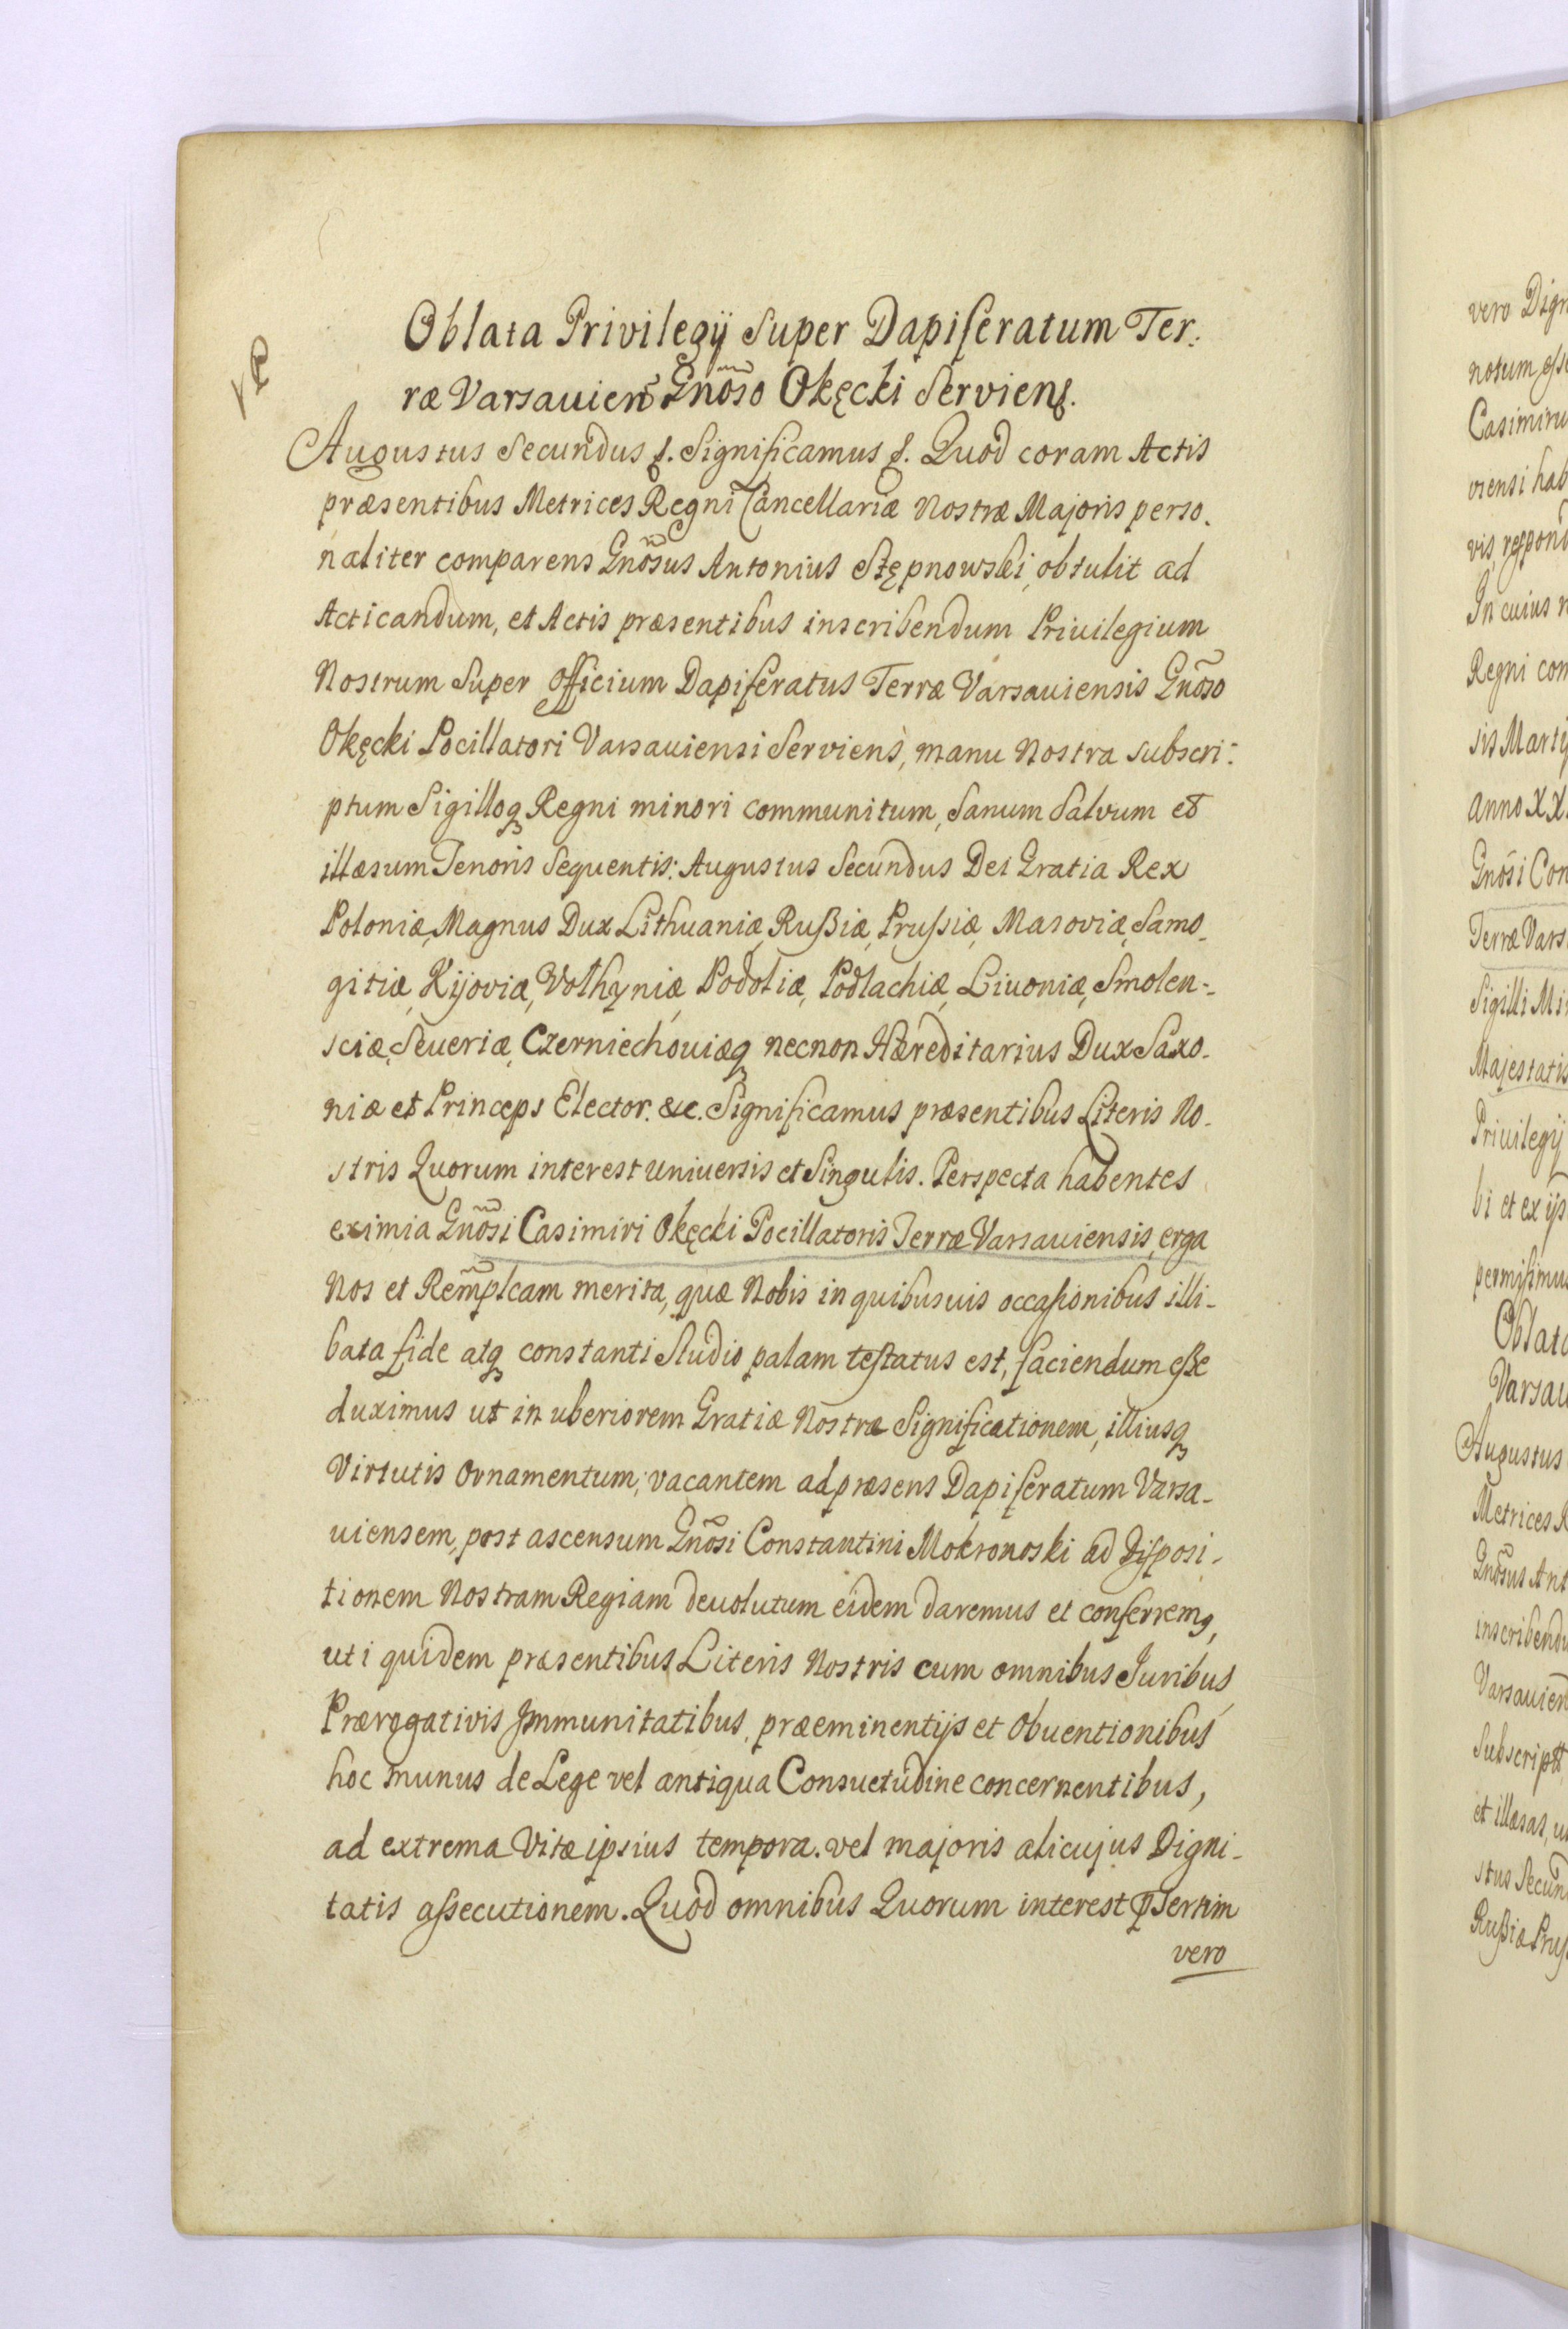 Oblata Privilegij Super Dapiferatum Ter:
ræ Varsauien̄ Gnõso Okęcki Serviens.
Augustus Secundus &. Significamus &. Quod coram Actis
præsentibus Metrices Regni Cancellariæ Nostræ Majoris perso-
naliter comparens Gnõsus Antonius Stępnowski, obtulit ad
Acticandum, et Actis præsentibus inscribendum Privilegium
Nostrum Super Officium Dapiferatus Terræ Varsauiensis Gnõso
Okęcki Pocillatori Varsauiensi Serviens, manu Nostra subscri:
ptum Sigilloq Regni minori communitum, Sanum Salvum et
illæsum Tenoris Sequentis: Augustus Secundus Dei Gratia Rex
Poloniæ, Magnus Dux Lithuaniæ, Rußiæ, Prussiæ, Masoviæ, Samo-
gitiæ, Kijoviæ, Volhyniæ, Podoliæ, Podlachiæ, Liuoniæ, Smolen-
sciæ, Seueriæ, Czerniechouiæq necnon Hæreditarius Dux Saxo-
niæ et Princeps Elector. &c. Significamus præsentibus Literis No-
stris Quorum interest uniuersis et Singulis. Perspecta habentes
eximia Gnõsi Casimiri Okęcki Pocillatoris Terræ Varsauiensis, erga
Nos et Rem̃plcam merita, quæ Nobis in quibusuis occasionibus illi-
bata fide atq constanti Studio palam testatus est, faciendum eße
duximus ut in uberiorem Gratiæ Nostræ Significationem, illiusq
Virtutis Ornamentum, vacantem ad præsens Dapiferatum Varsa-
uiensem, post ascensum Gnõsi Constantini Mokronoski ad Disposi-
tionem Nostram Regiam deuolutum eidem daremus et conferremq,
uti quidem præsentibus Literis Nostris cum omnibus Juribus,
Prærogativis Immunitatibus, præeminentijs et Obuentionibus
hoc munus de Lege vel antiqua Consuetudine concernentibus,
ad extrema Vitæ ipsius tempora. vel majoris alicujus Digni-
tatis assecutionem. Quod omnibus Quorum interest p̄sertim
vero
vero
notum
Casimiru
viensi hab
vis, respond
In cuius
Regni con
sis Marti
anno XX
Gnõsi Con
Terræ Vars
Sigilli Mi
Majestatis
Privilegij
bi et ex ijs
permisimus
Oblata
Varsau
Augustus
Metrices R
Gnõsus Ant
inscribendu
Varsauien
Subscript
et illæsas,
stus Secun
Rußiæ Prus